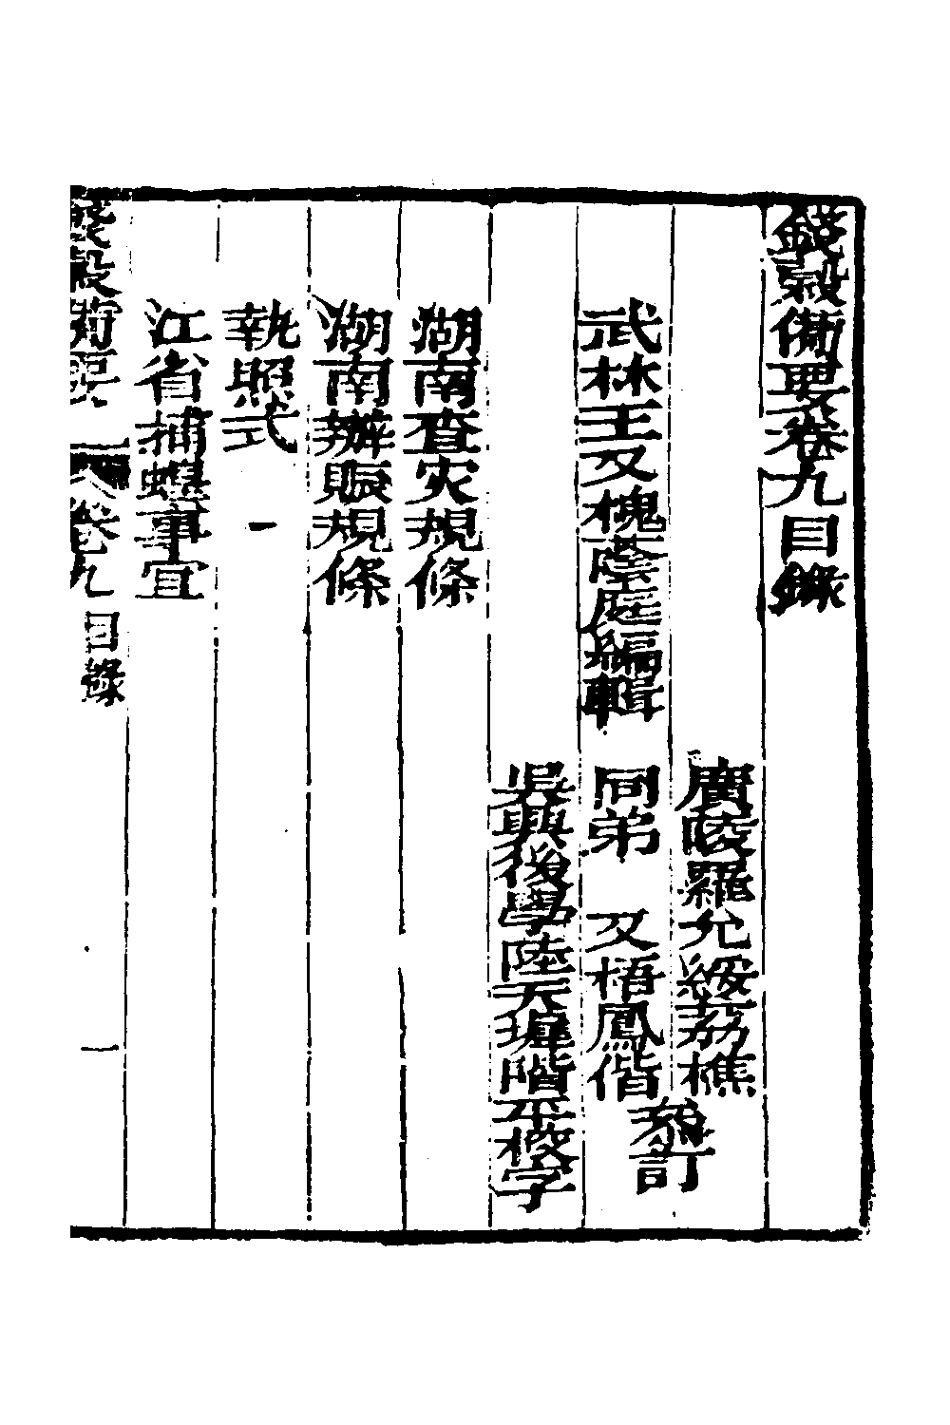 錢穀備要卷九目錄
廣陵羅允綏荔樵
武林王又槐蔭庭編輯
同弟 又梧鳳偕
叅訂
吳興後學陸天墀階平校字
湖南査灾規條
湖南辦賑規條
執照式 一
江省捕蝗事宜
錢穀備要 卷九 目錄 一